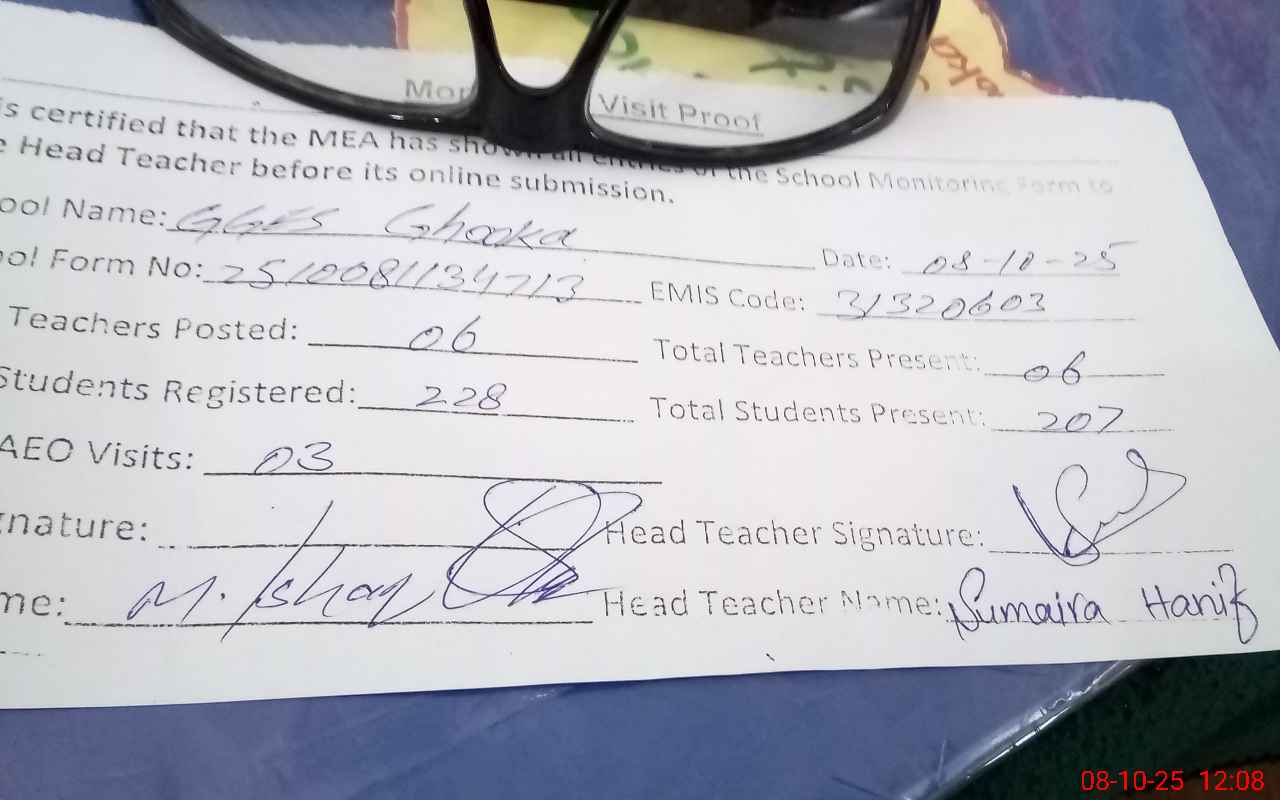 Mon Visit Proof
is certified that the MEA has shown all entries of the School Monitoring Form to
e Head Teacher before its online submission.
ool Name: GGES Ghooka
Date: 08-10-25
ool Form No: 2510081134713 EMIS Code: 31320603
Teachers Posted: 06 Total Teachers Present: 06
Students Registered: 228 Total Students Present: 207
AEO Visits: 03
gnature: Head Teacher Signature:
me: M. Ishaq Head Teacher Name: Sumaira Hanif
08-10-25 12:08